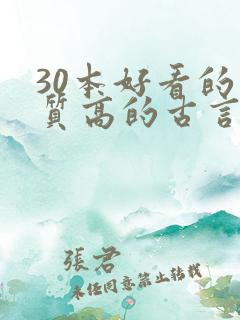 30本好看的
质高的古言
張君
未经同意禁止转载